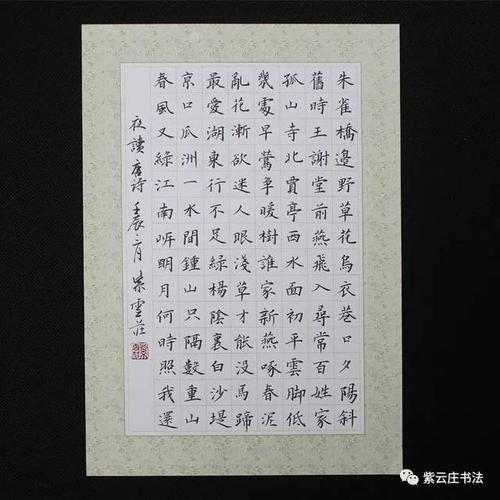 朱雀橋邊野草花烏衣巷口夕陽斜
舊時王謝堂前燕飛入尋常百姓家
孤山寺北賈亭西水面初平雲脚低
幾處早鶯争暖樹誰家新燕啄春泥
亂花漸欲迷人眼淺草才能沒馬蹄
最愛湖東行不足綠楊陰裏白沙堤
京口瓜洲一水間鍾山只隔數重山
春風又綠江南岸明月何時照我還
夜讀唐诗 壬辰 月 紫雲莊
紫云庄书法